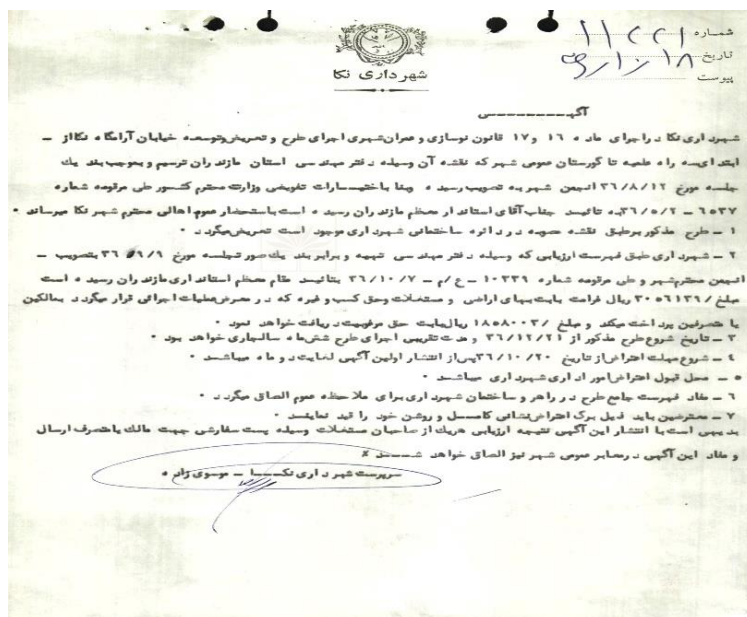 شماره ۱۱۲۲۱
تاریخ ۱۸/۱۰/
پیوست
شهرداری نکا
آگهـــی
شهرداری نکا در اجرای ماده ۱۶ و ۱۷ قانون نوسازی و عمران شهری اجرای طرح و تعریض و توسعه خیابان آرامگاه نکا از –
ابتدای سه راه علمیه تا گورستان عمومی شهر که نقشه آن وسیله دفتر مهندسی استان مازندران ترسیم و بموجب بند یك
جلسه مورخ ۳۶/۸/۱۲ انجمن شهر به تصویب رسیده و بنا باختیارات تفویضی وزارت محترم کشور طی مرقومه شماره
۶۵۳۷ – ۳۶/۵/۲ به تائید جناب آقای استاندار معظم مازندران رسیده است باستحضار عموم اهالی محترم شهر نکا میرساند ۰
۱ – طرح مذکور برطبق نقشه مصوبه در دائره ساختمانی شهرداری موجود است تعریض میگردد ۰
۲ – شهرداری طبق فهرست ارزیابی که وسیله دفتر مهندسی تهیه و برابر بند یك صورتجلسه مورخ ۳۶/۹/۹ بتصویب –
انجمن محترم شهر و طی مرقومه شماره ۱۰۳۳۹ – ع/م – ۳۶/۱۰/۷ بتائید مقام معظم استانداری مازندران رسیده است
مبلغ /۳۰۵۶۱۳۶ ریال غرامت بابت بهای اراضی و مستغلات وحق کسب و غیره که در معرض عملیات اجرائی قرار میگردد بمالکین
یا متصرفین پرداخت میکند و مبلغ /۱۸۵۸۰۰۳ ریال بابت حق مرغوبیت دریافت خواهد نمود ۰
۳ – تاریخ شروع طرح مذکور از ۳۶/۱۲/۲۱ و مدت تقریبی اجرای طرح شش ماه سالجاری خواهد بود ۰
۴ – شروع مهلت اعتراض از تاریخ ۳۶/۱۰/۲۰ پس از انتشار اولین آگهی لغایت دو ماه میباشد ۰
۵ – محل قبول اعتراض امور اداری شهرداری میباشد ۰
۶ – مفاد فهرست جامع طرح در راهرو ساختمان شهرداری برای ملاحظه عموم الصاق میگردد ۰
۷ – معترضین باید ذیل برگ اعتراض نشانی کامل و روشن خود را قید نمایند
بدیهی است با انتشار این آگهی نتیجه ارزیابی هریك از صاحبان مستغلات وسیله پست سفارشی جهت مالك یا متصرف ارسال
و مفاد این آگهی در معابر عمومی شهر نیز الصاق خواهد شد
سرپرست شهرداری نکا – موسوی زاده